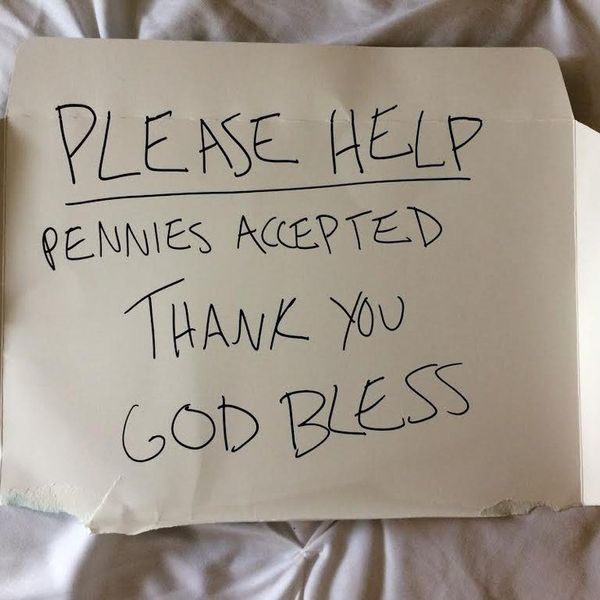 PLEASE HELP
PENNIES ACCEPTED
THANK YOU
GOD BLESS